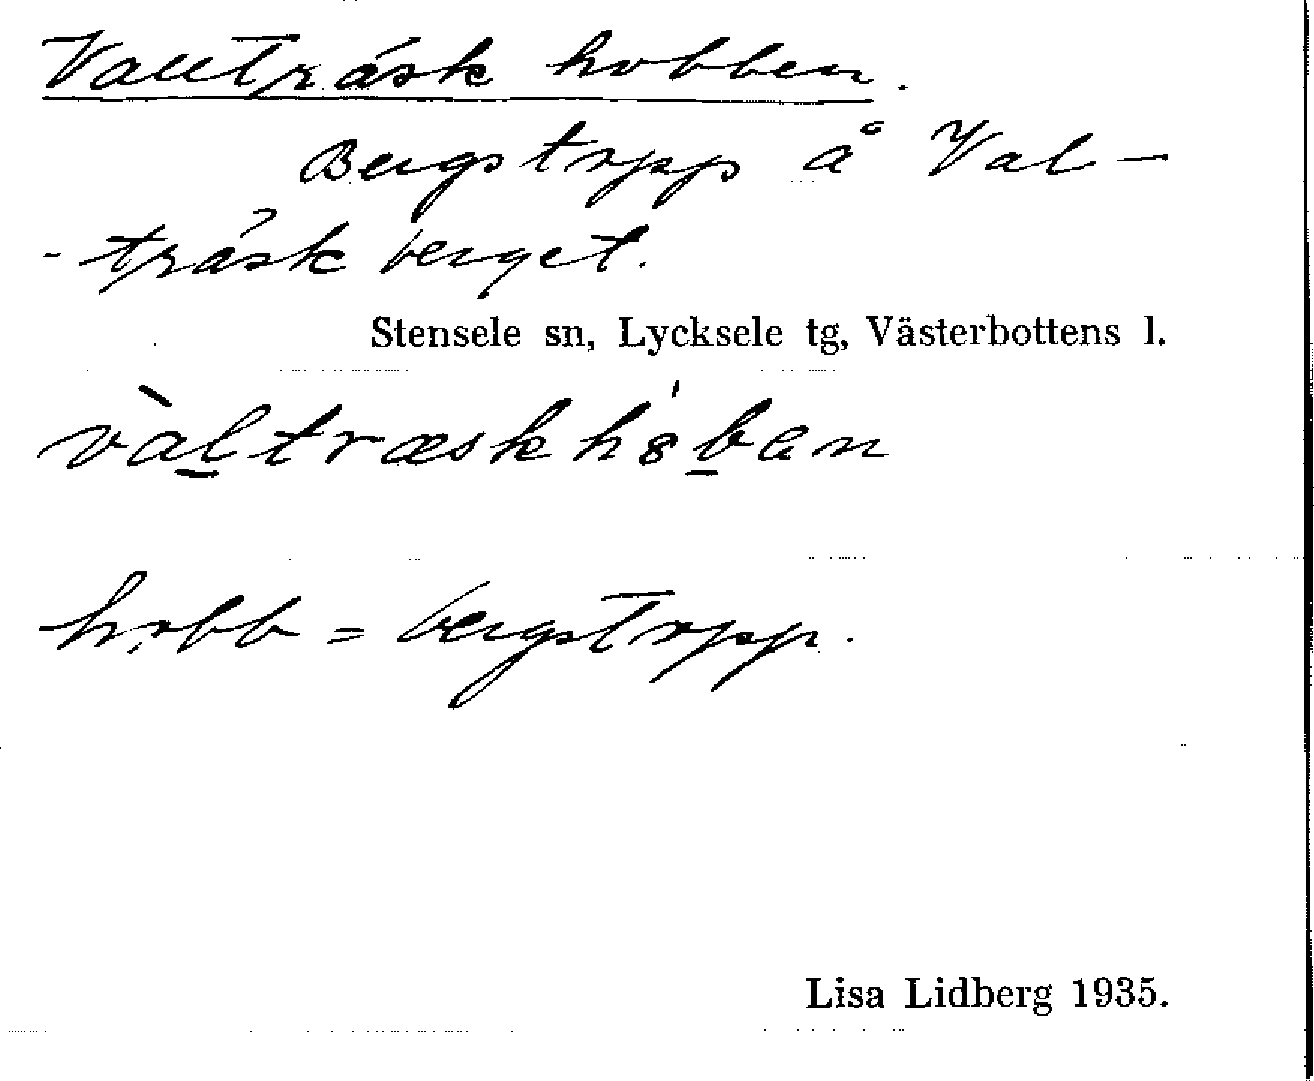 Vallträsk hobben.
Bergstopp å Val-
-träsk berget.
Stensele sn, Lycksele tg, Västerbottens l.
vàl̲træskh8́b̲ən
hobb = bergstopp.
Lisa Lidberg 1935.